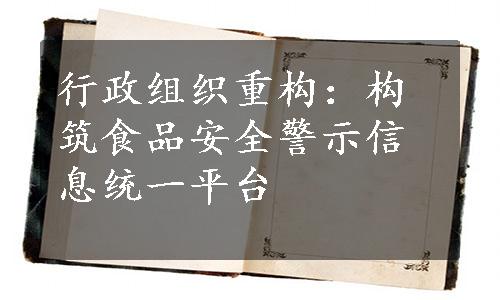 行政组织重构：构
筑食品安全警示信
息统一平台